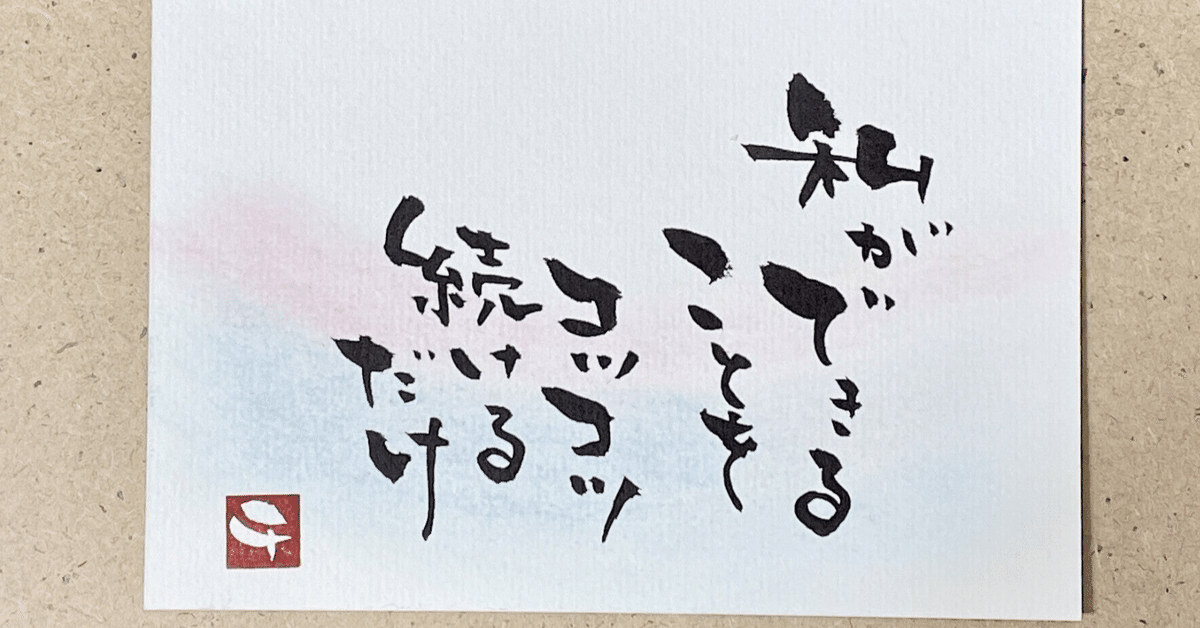 私が
できる
ことも
コツコツ
続ける
だけ